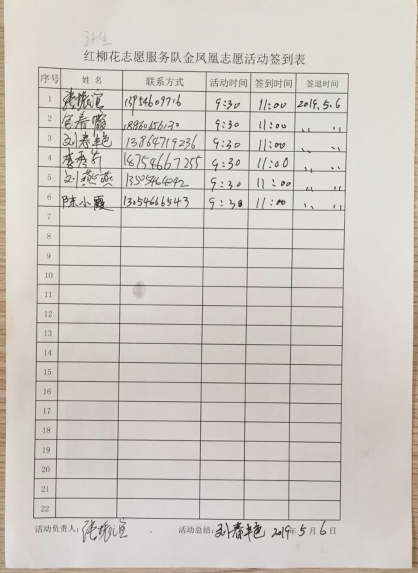 红柳花志愿服务队金凤凰志愿活动签到表
序号 姓名 联系方式 活动时间 签到时间 签退时间
1 张振谊 9:30 11:00 2019.5.6
2 9:30 11:00 〃 〃
3 刘春艳 13864719236 9:30 11:00 〃 〃
4 18754667255 9:30 11:00 〃 〃
5 刘燕燕 9:30 11:00 〃 〃
6 陈小霞 13054666543 9:30 11:00 〃 〃
7
8
9
10
11
12
13
14
15
16
17
18
19
20
21
22
活动负责人: 张振谊 活动总结: 刘春艳 2019年5月6日